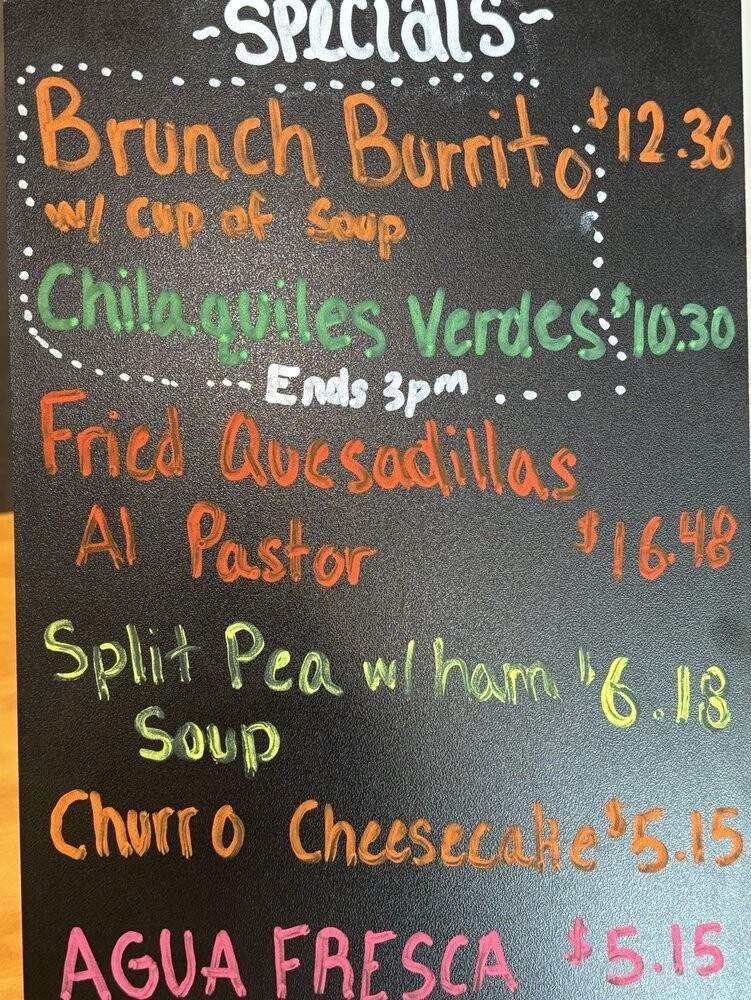 ~Specials~
Brunch Burrito $12.36
w/ Cup of Soup
Chilaquiles Verdes $10.30
Ends 3pm
Fried Quesadillas
Al Pastor $16.48
Split Pea w/ ham $6.18
Soup
Churro Cheesecake $5.15
AGUA FRESCA $5.15